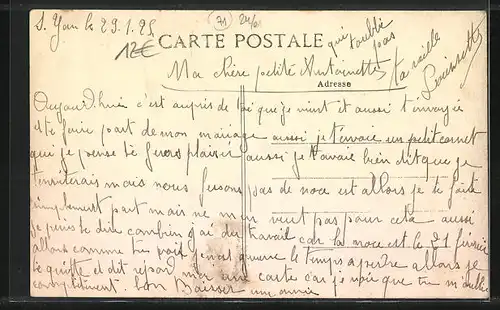 S. Yan le 29.1.25
71
12€
CARTE POSTALE
qui t'oublie pas
ta vieille
Ma chère petite Antoinette
Adresse
Aujourd'hui c'est aupris de toi que je vient et aussi t'invoyer
et te faire part de mon mariage aussi je t'envoie un petit carnet
qui je pense te feras plaisir aussi je t'avaie bien dit que je
t'enviterais mais nous fesons pas de noce est allors je te faite
simplement part mais ne m'en veut pas pour cela aussi
je pense te dire combien j'ai du travail car la noce est le 21 février
allors comme tu voit j'en ai guerre le temps a perdre allors je
te quitte et dit repond moi une carte car je voie que tu m'oublie
complètement. bon Baisser une amie